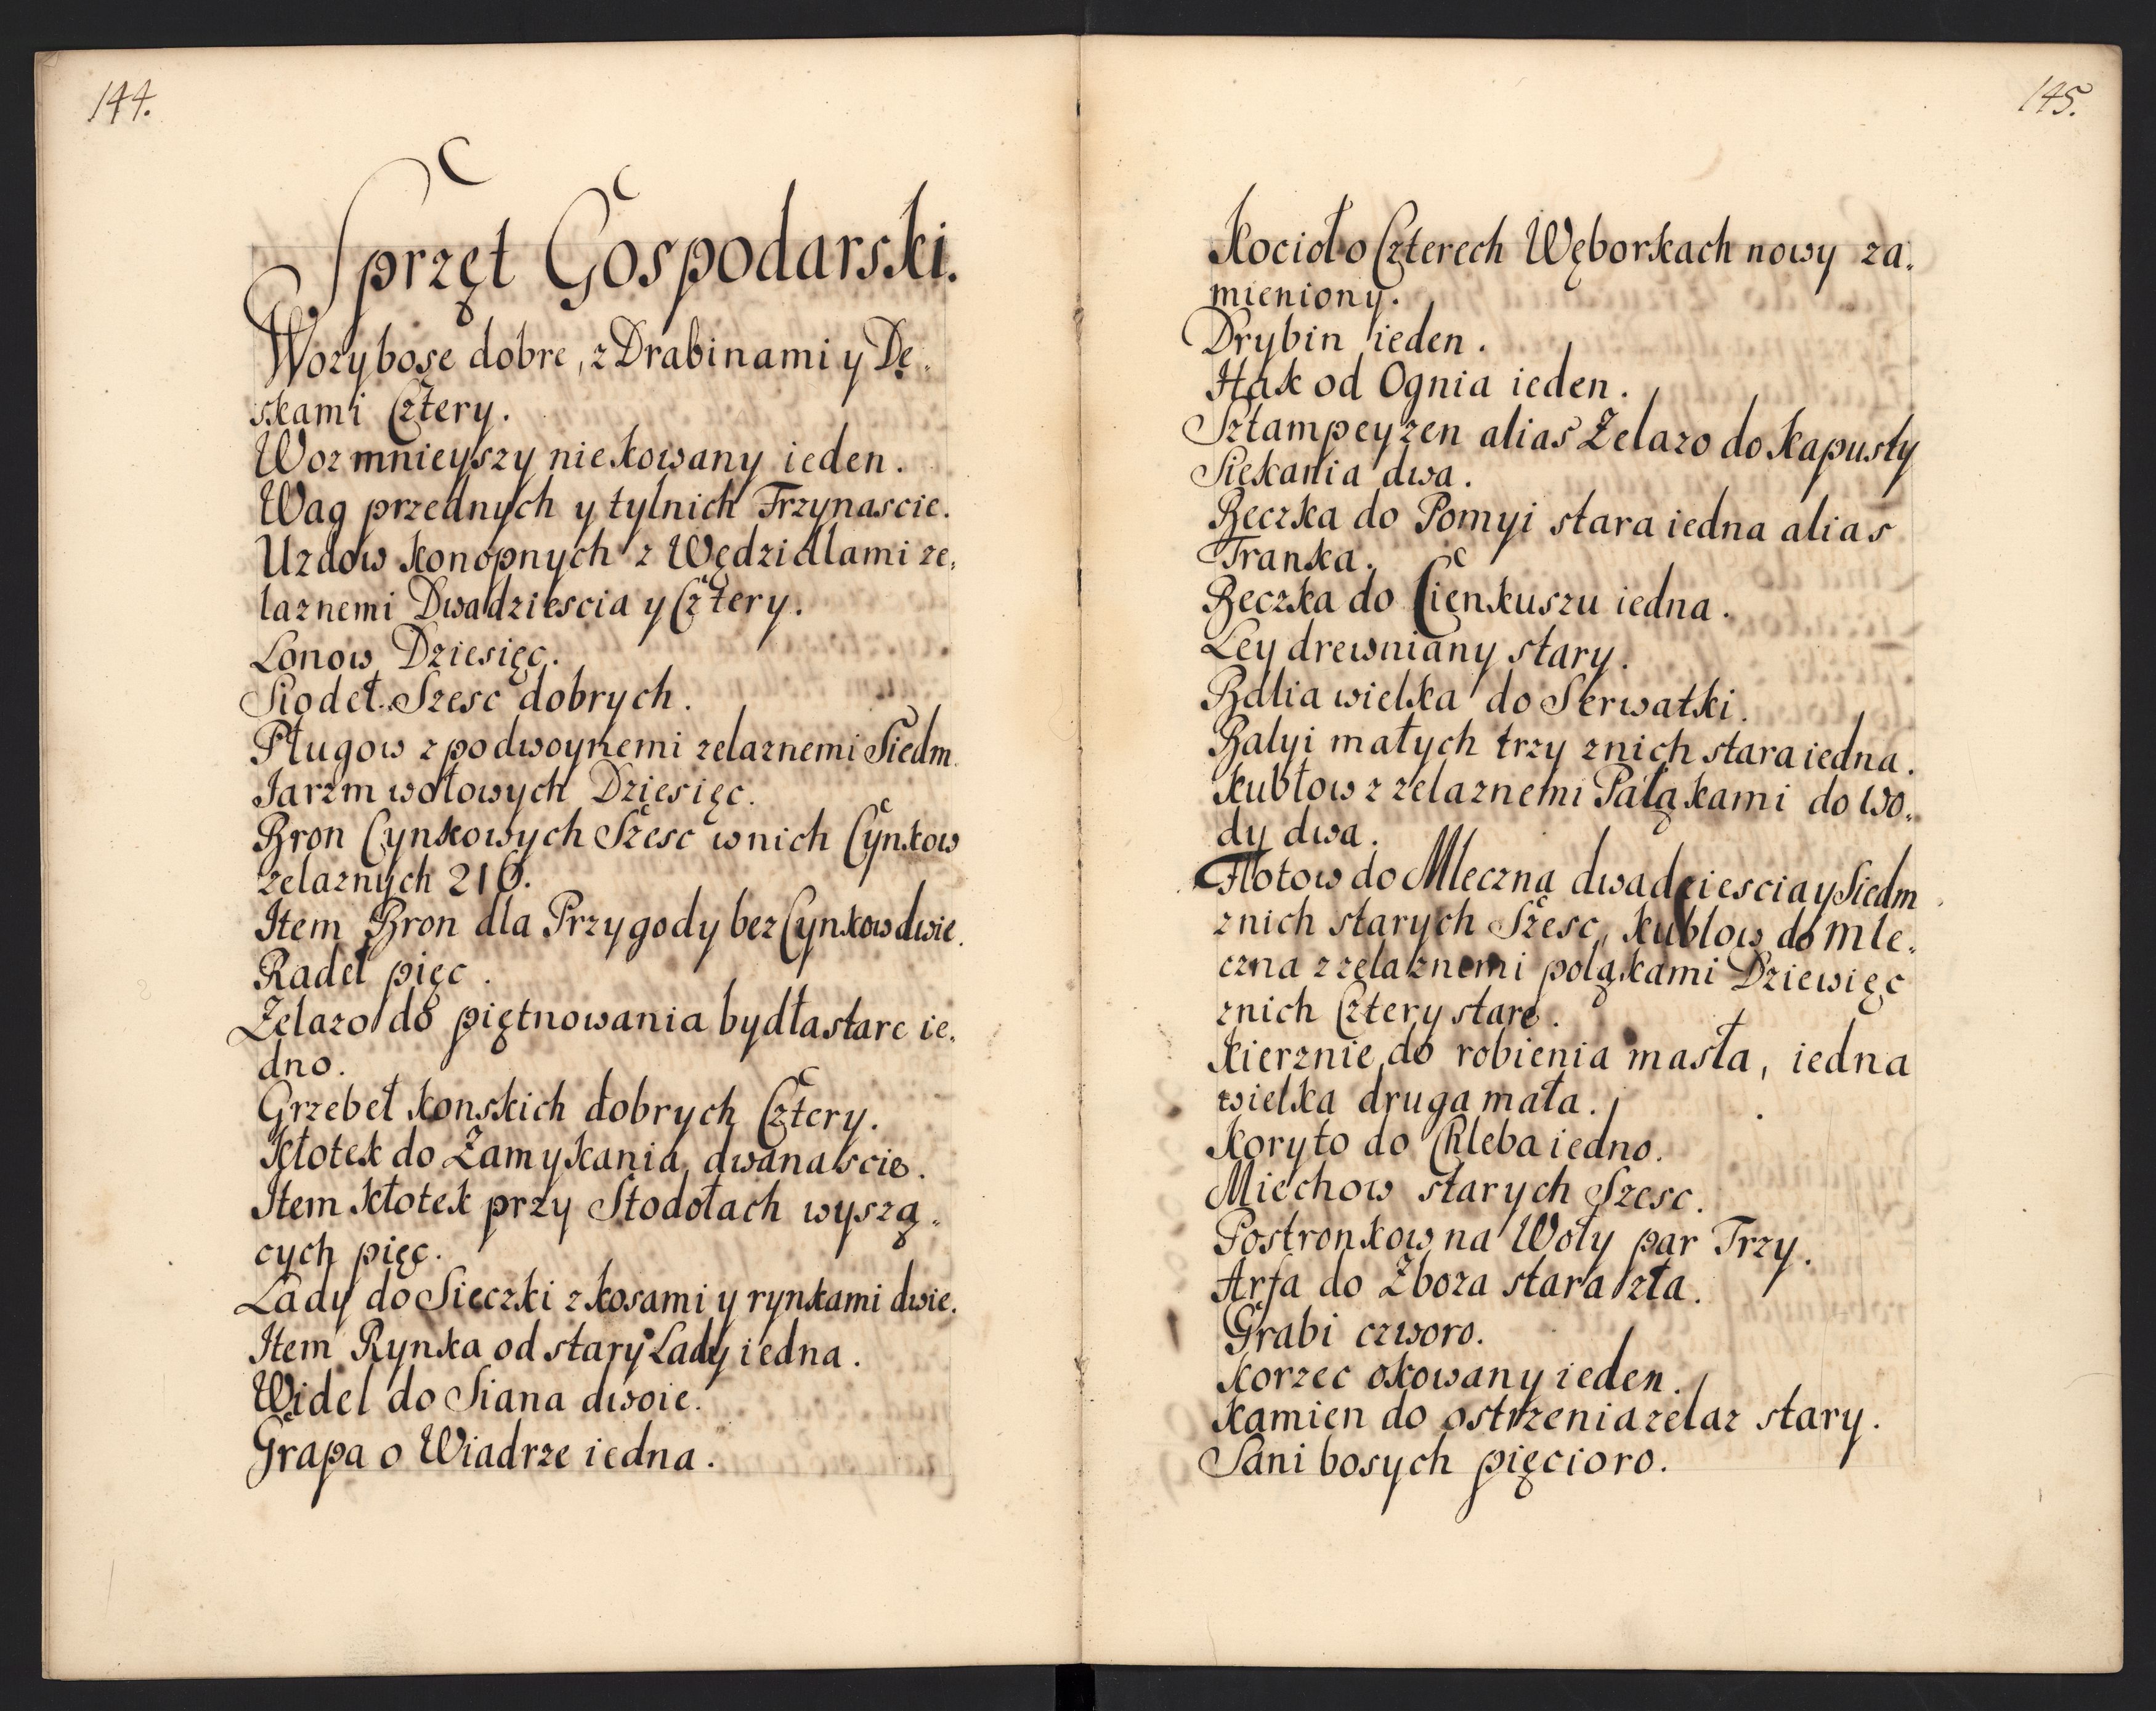 144.
Sprzęt Gospodarski.
Wozy bose dobre, z Drabinami y De„
skami Cztery.
Woz mnieyszy niekowany ieden.
Wag przednych y tylnich Trzynascie.
Uzdow konopnych z Wędzidlami ze„
laznemi Dwadziescia y Cztery.
Lonow Dziesięc.
Siodeł Szesc dobrych.
Pługow z podwoynemi zelaznemi Siedm.
Iarzm wołowych Dziesięc.
Bron Cynkowych Szesc w nich Cynkow
zelaznych 216.
Item Bron dla Przygody bez Cynkow dwie.
Radeł pięc.
Zelazo do piętnowania bydła stare ie„
dno.
Grzebeł konskich dobrych Cztery.
Kłotek do Zamykania dwanascie.
Item Kłotek przy Stodołach wyszą„
cych pięc.
Lady do Sieczki z kosami y rynkami dwie.
Item Rynka od stary Lady iedna.
Widel do Siana dwoie.
Grapa o Wiadrze iedna.
145.
Kocioł o Czterech Węborkach nowy za„
mieniony.
Drybin ieden.
Hak od Ognia ieden.
Sztampeyzen alias Zelazo do Kapusty
Siekania dwa.
Beczka do Pomyi stara iedna alias
Tranka.
Beczka do Cienkuszu iedna.
Ley drewniany stary.
Balia wielka do Serwatki.
Balyi małych trzy znich stara iedna.
Kubłow z zelaznemi Pałąkami do Wo„
dy dwa.
Flotow do Mleczna dwadziescia y Siedm
znich starych Szesc, Kublow do Mle„
czna z zelaznemi poląkami Dziewięc
znich Cztery stare.
Kierznie do robienia masła, iedna
wielka druga mała.
Koryto do Chleba iedno.
Miechow starych Szesc.
Postronkow na Woły par Trzy.
Arfa do Zboza stara zła.
Grabi czworo.
Korzec okowany ieden.
Kamien do ostrzenia zelaz stary.
Sani bosych pięcioro.